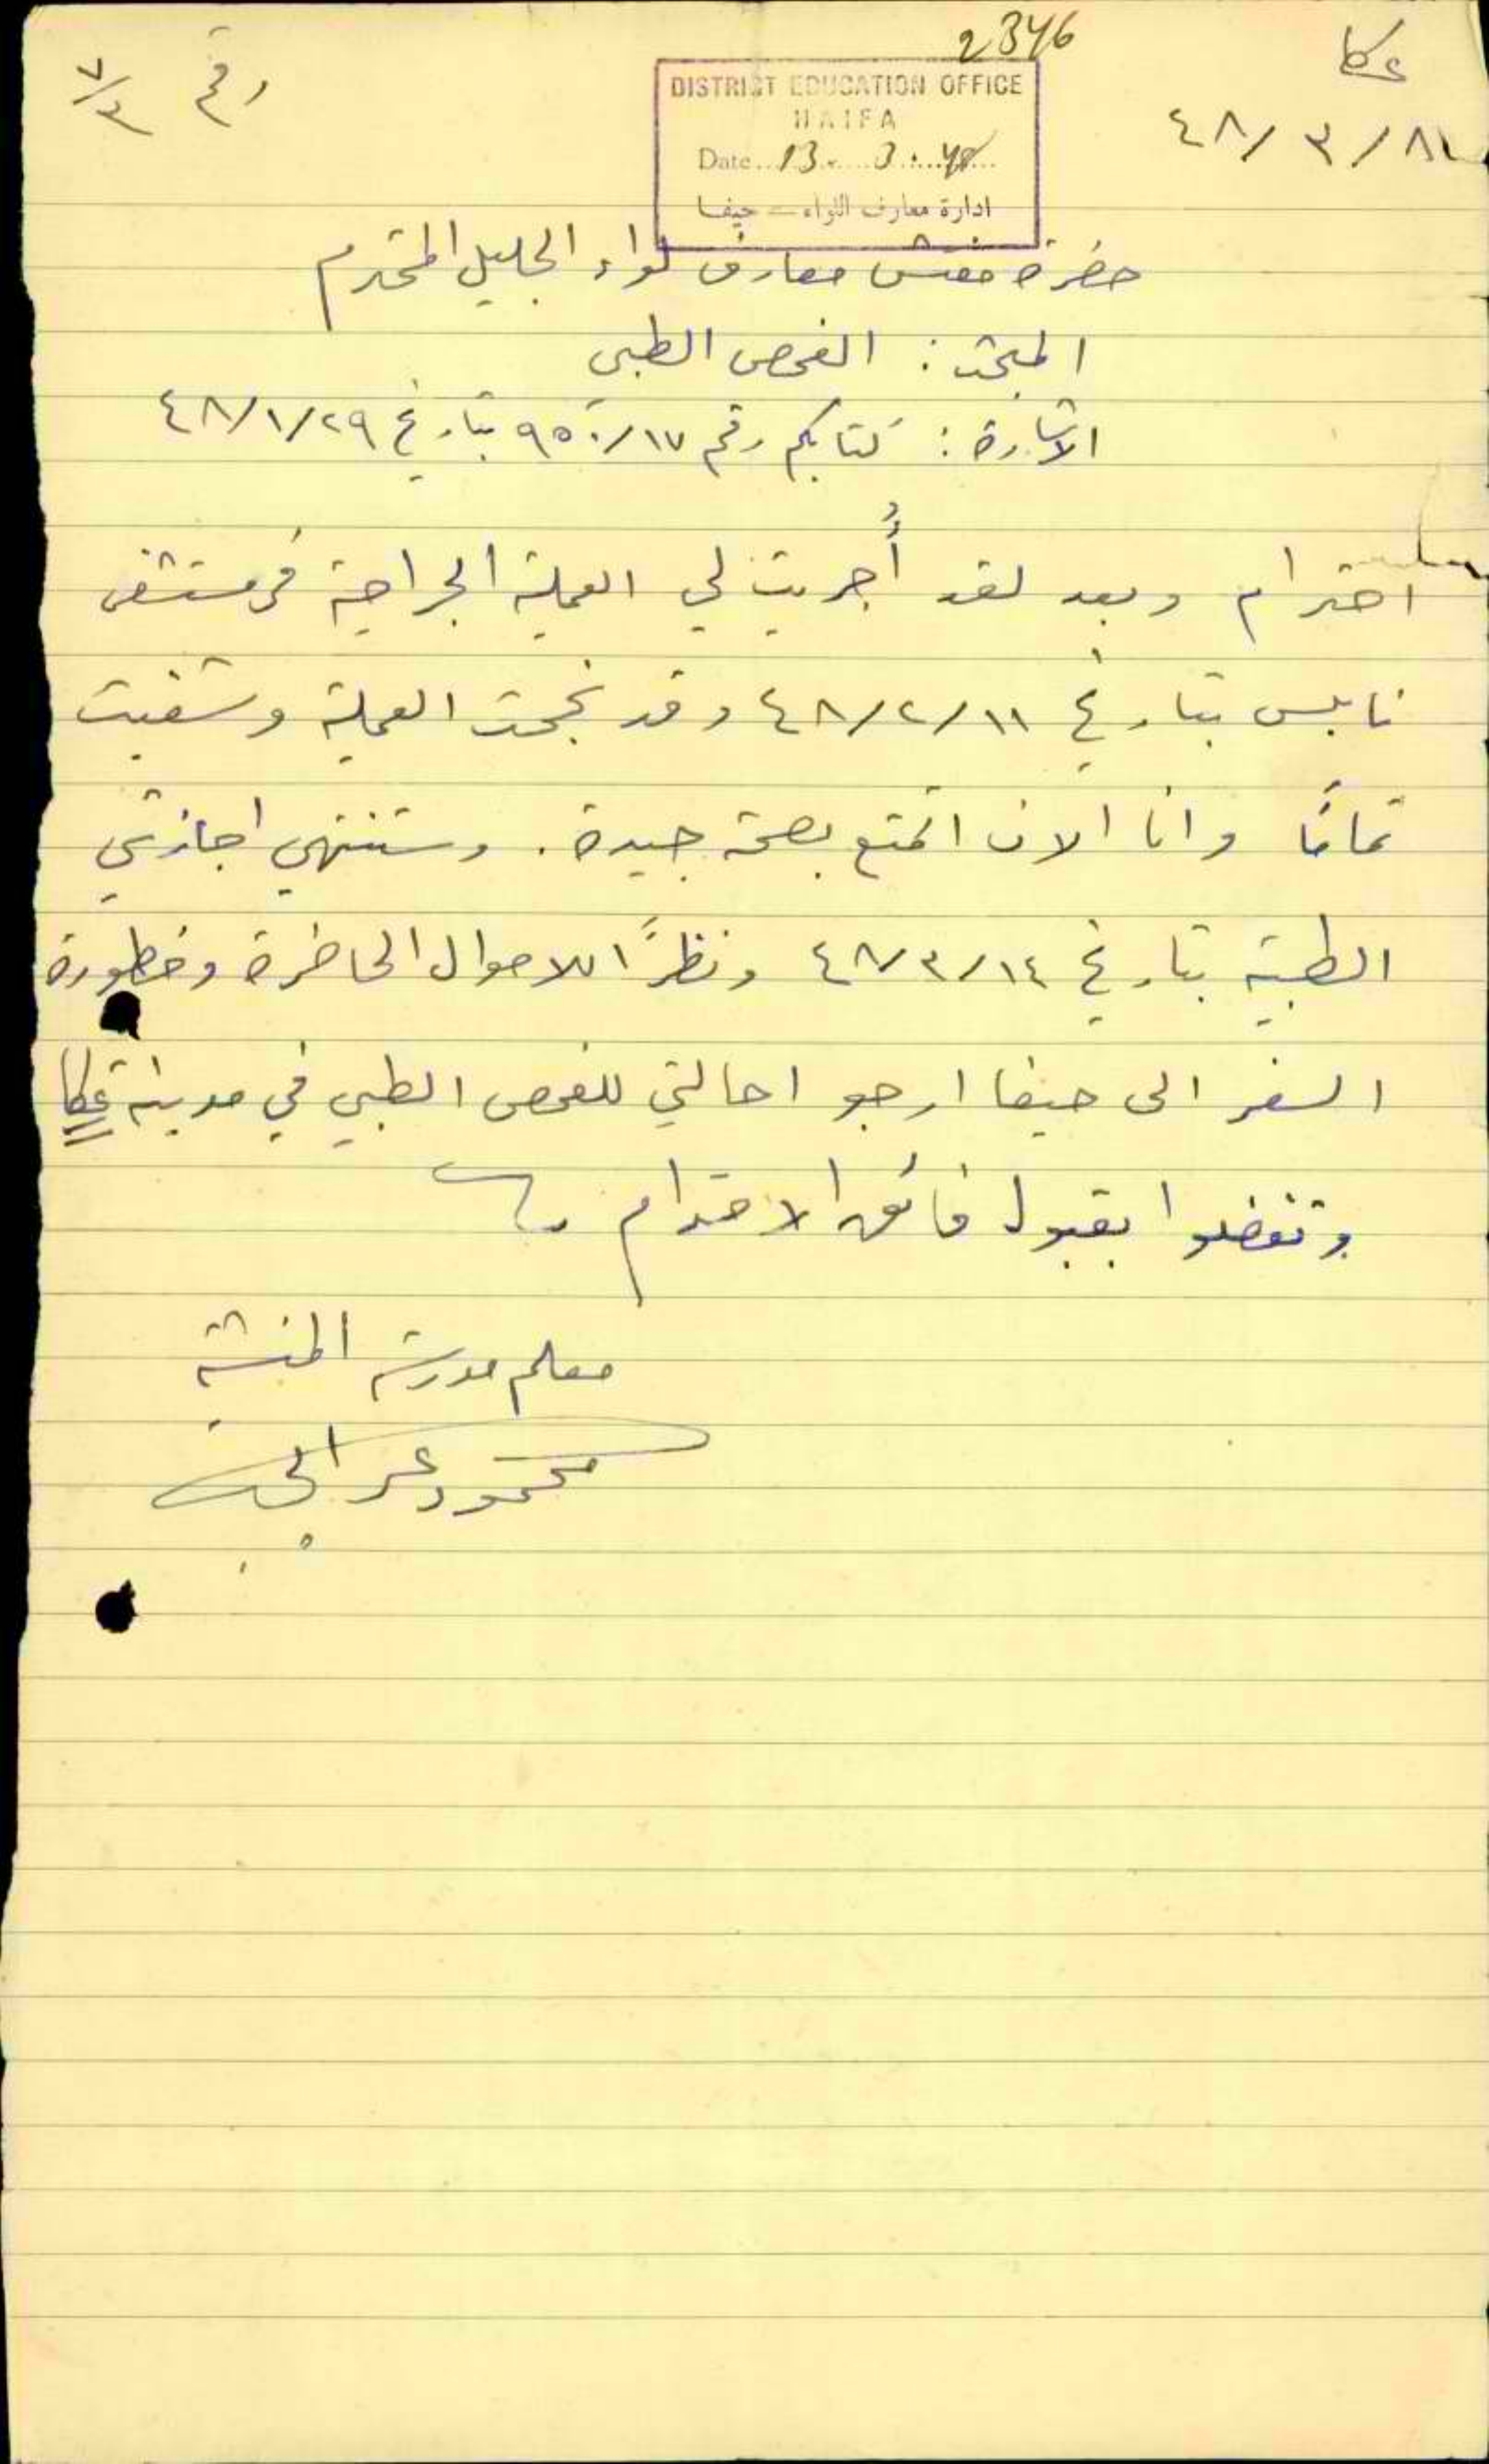 2346
عكا
رقم ٧/٣
DISTRICT EDUCATION OFFICE
HAIFA
Date 13. 3. 48
ادارة معارف اللواء - حيفا
٤٨/٣/
حضرة مفتش معارف لواء الجليل المحترم
المبحث : الفحص الطبي
الاشارة : كتابكم رقم ٩٥٠/١٧ بتاريخ ٤٨/١/٢٩
احترام وبعد لقد أُجريت لي العملية الجراحية في مستشفى
نابلس بتاريخ ٤٨/٢/١١ وقد نجحت العملية وشفيت
تمامًا وانا الان اتمتع بصحة جيدة . وستنتهي اجازتي
الطبية بتاريخ ٤٨/٣/١٤ ونظرًا للاحوال الحاضرة وخطورة
السفر الى حيفا ارجو احالتي للفحص الطبي في مدينة عكا
وتفضلوا بقبول فائق الاحترام
معلم مدرسة المنشية
محمود